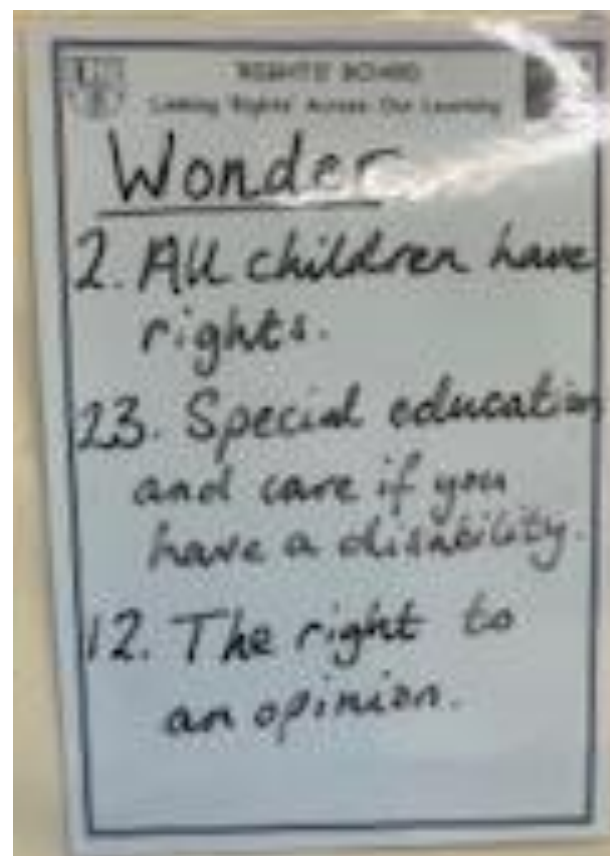 'RIGHTS' BOARD
Linking 'Rights' Across Our Learning
Wonder
2. All children have
rights.
23. Special education
and care if you
have a disability.
12. The right to
an opinion.